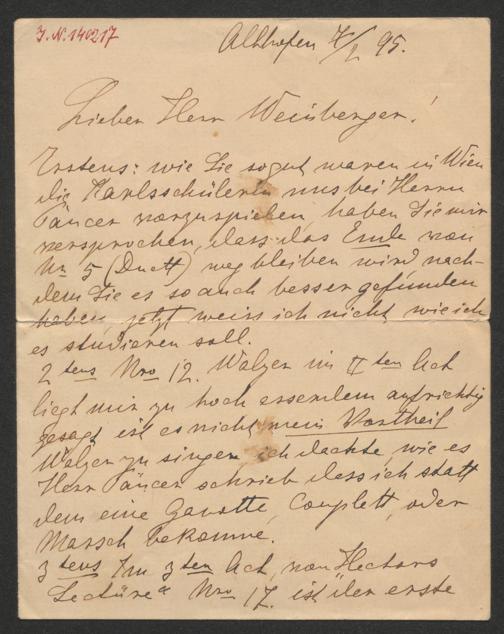 J.N.140217
Althofen 4/2 95.
Lieber Herr Weinberger!
Erstens: wie Sie so gut waren in Wien
die Karlsschülerin uns bei Herrn
Täncer vorzuspielen, haben Sie mir
versprochen, dass das Ende von
Nr 5 (Duett) weg bleiben wird nach-
dem Sie es so auch besser gefunden
haben, jetzt weiss ich nicht wie ich
es studieren soll.
2tens Nro 12. Walzer im IIten Act
liegt mir zu hoch esserdem aufrichtig
gesagt ist es nicht mein Vortheil
Walzer zu singen, ich dachte wie es
Herr Täncer schrieb dass ich statt
dem eine Gavotte, Couplett, oder
Marsch bekomme.
3tens Im 3ten Act, von Hectors
Lectüre" Nro 17. ist "der erste